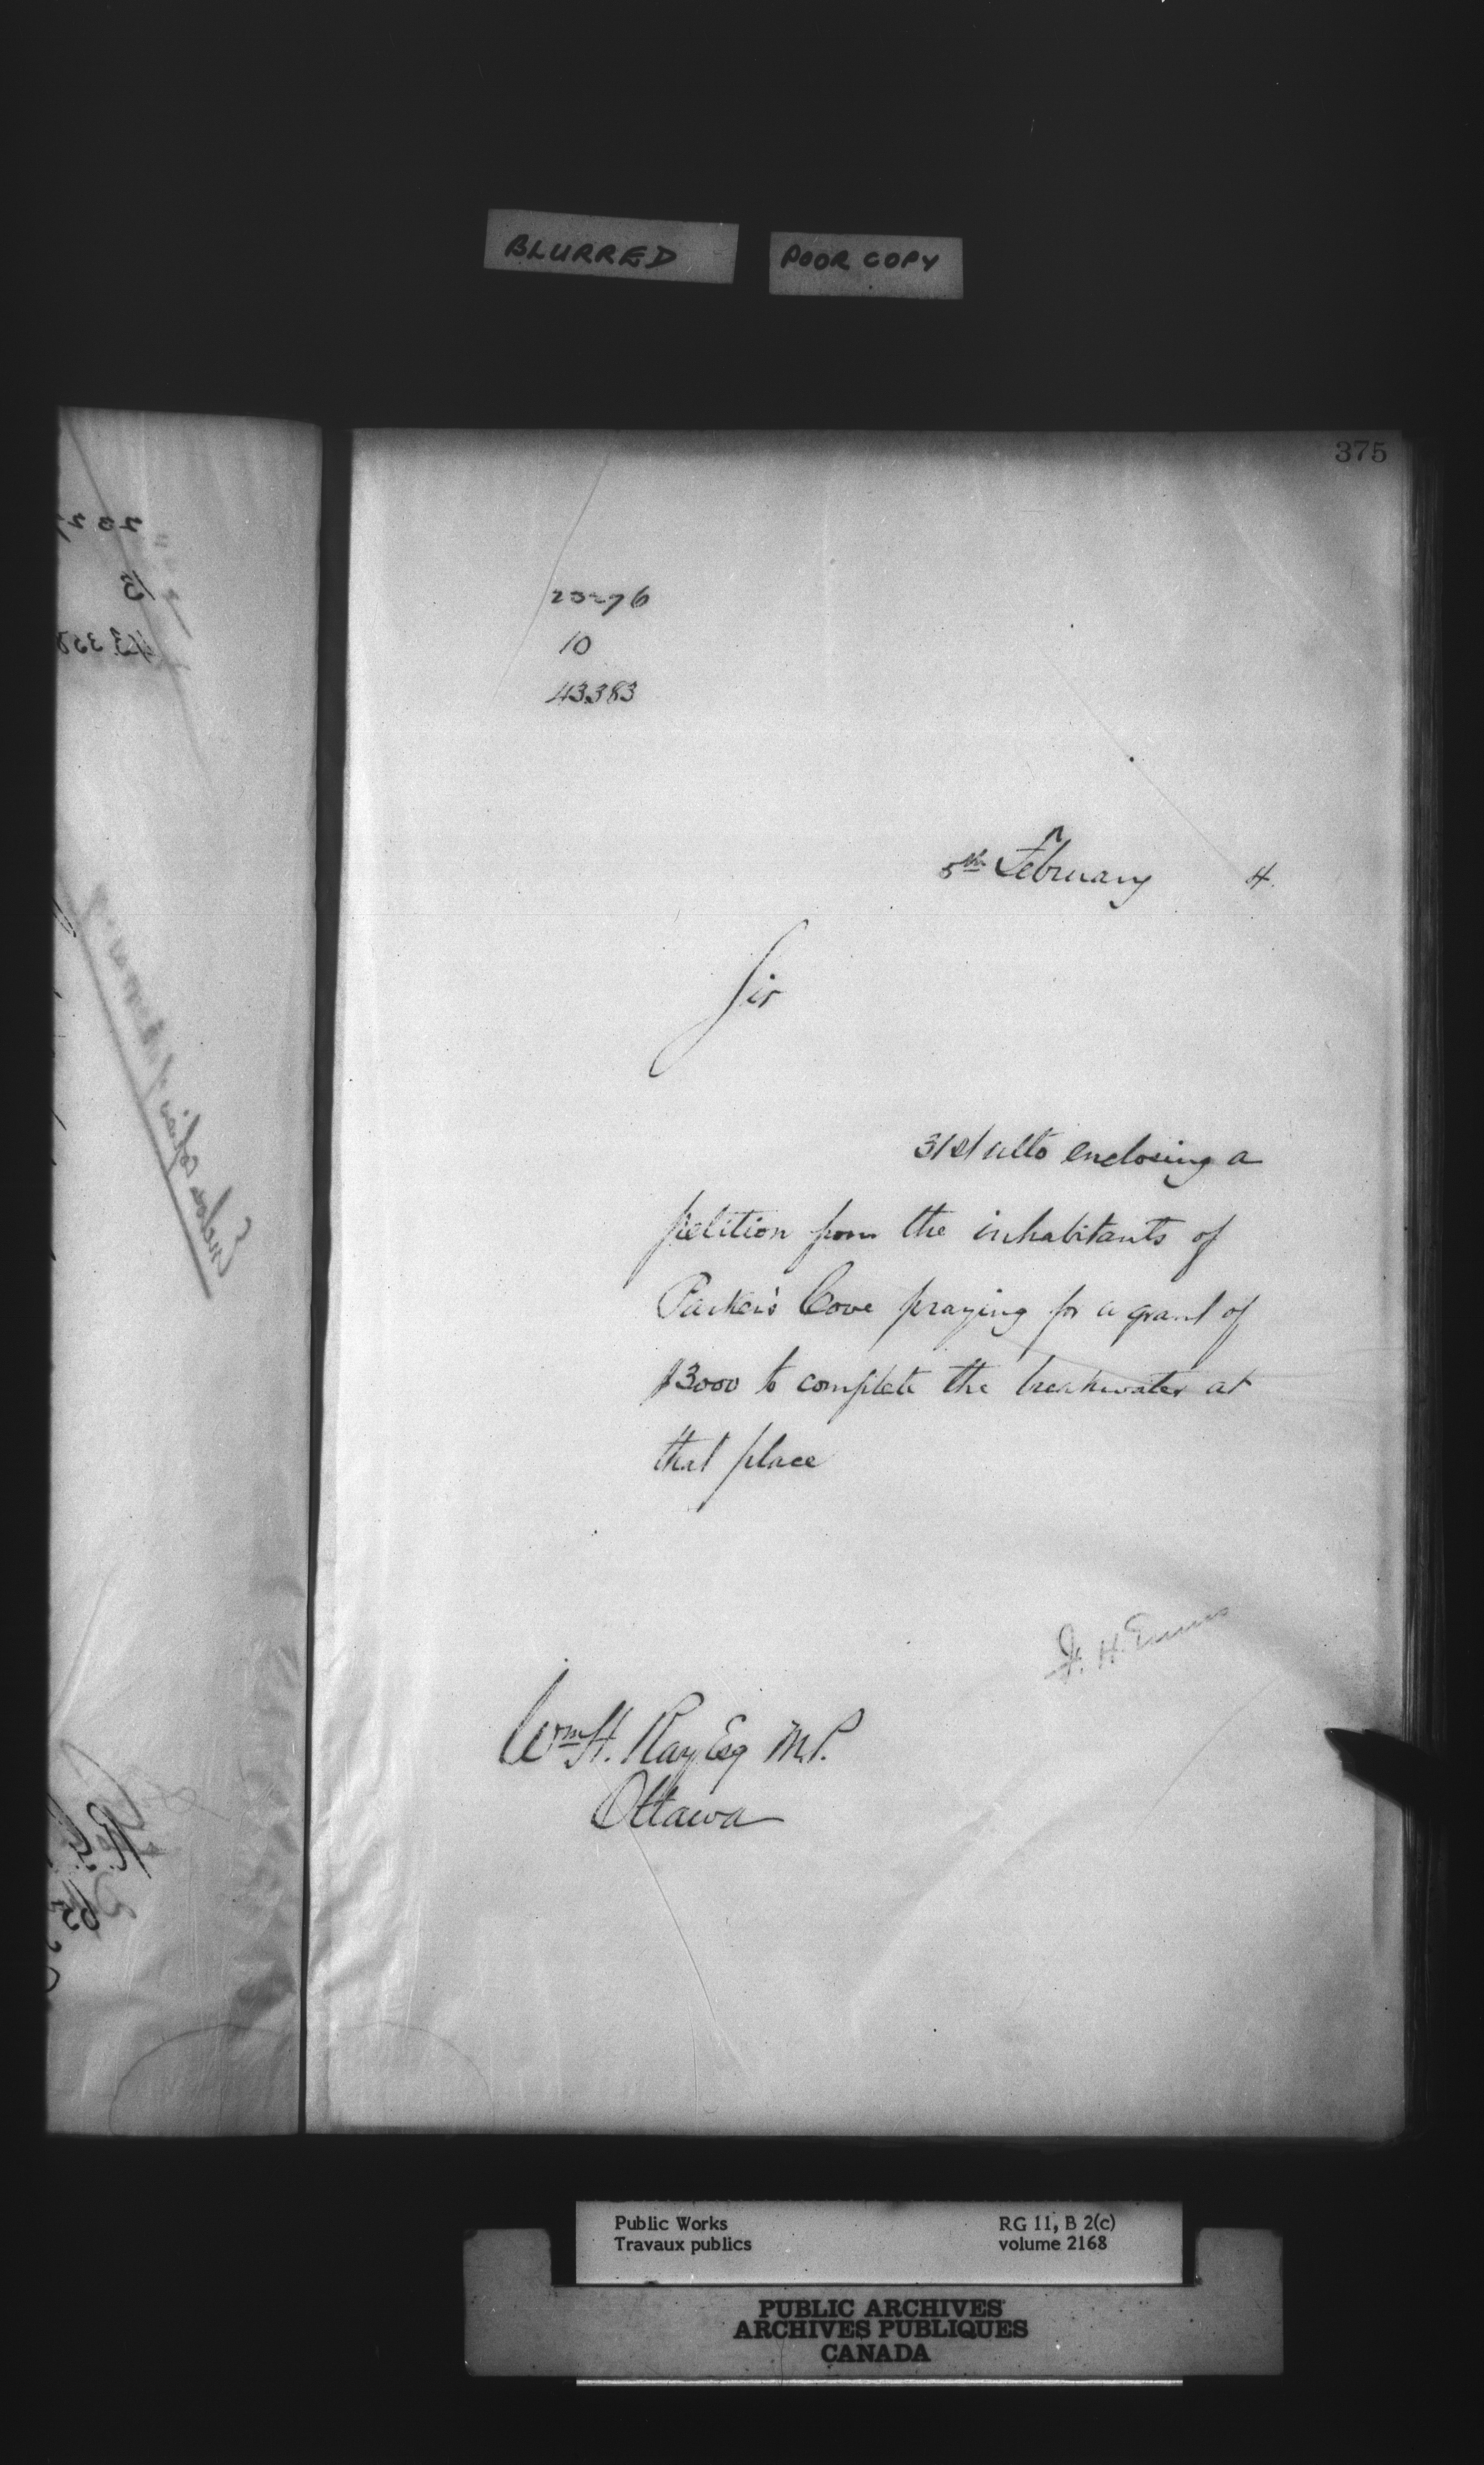 BLURRED
POOR COPY
375
10
43383
5th February 4.
Sir
31st ulto enclosing a
petition from the inhabitants of
Parker's Cove praying for a grant of
$3000 to complete the breakwater at
that place
F. H. Ennis
Wm H. Ray Esq M.P.
Ottawa
Public Works
Travaux publics
RG 11, B 2(c)
volume 2168
PUBLIC ARCHIVES
ARCHIVES PUBLIQUES
CANADA